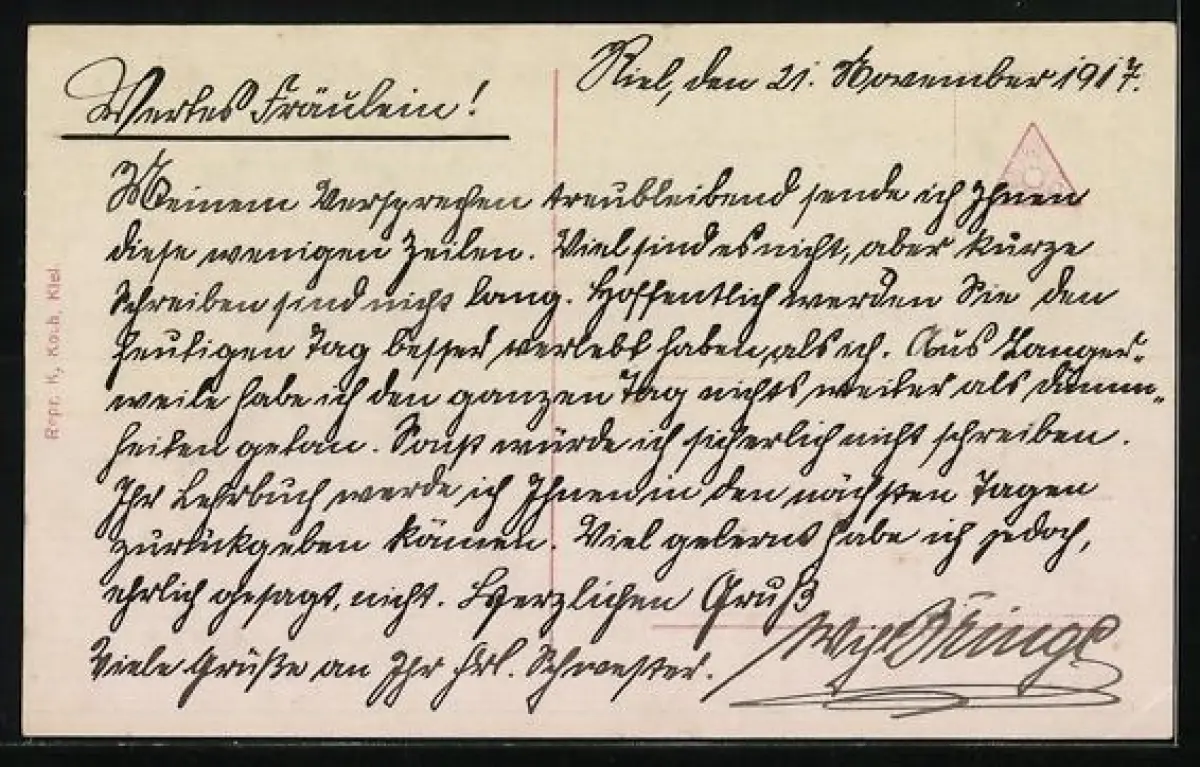 Kiel, den 21. November 1917.
Wertes Fräulein!
Meinem Versprechen treubleibend sende ich Ihnen
diese wenigen Zeilen. Viel sind es nicht, aber kurze
Schreiben sind nicht lang. Hoffentlich werden Sie den
heutigen Tag besser verlebt haben, als ich. Aus Langer-
weile habe ich den ganzen Tag nichts weiter als Dumm-
heiten getan. Sonst würde ich sicherlich nicht schreiben.
Ihr Lehrbuch werde ich Ihnen in den nächsten Tagen
zurückgeben können. Viel gelernt habe ich jedoch,
ehrlich gesagt, nicht. Herzlichen Gruß
Viele Grüße an Ihr Frl. Schwester.
Repr. K. Koch, Kiel